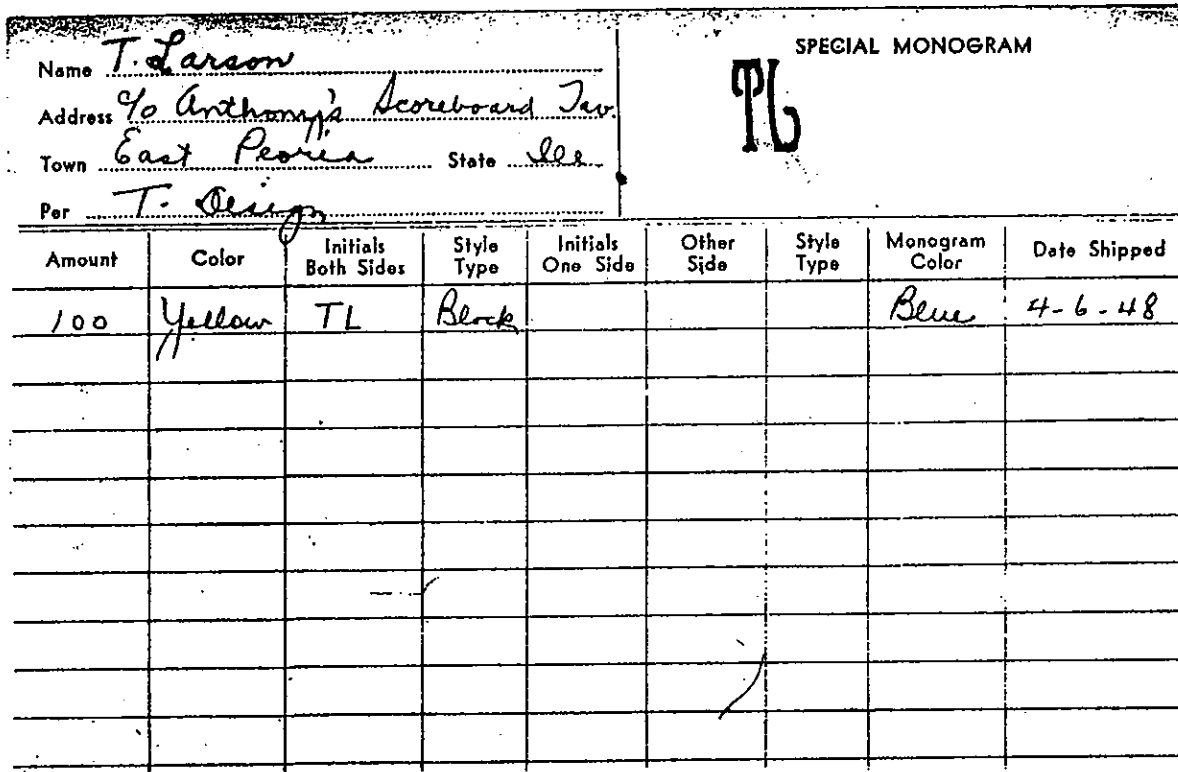 SPECIAL MONOGRAM
Name T. Larson
TL
Address c/o Anthony's Scoreboard Tav.
Town East Peoria State Ill.
Per T. Design
Amount Color Initials Both Sides Style Type Initials One Side Other Side Style Type Monogram Color Date Shipped
100 Yellow TL Block Blue 4-6-48